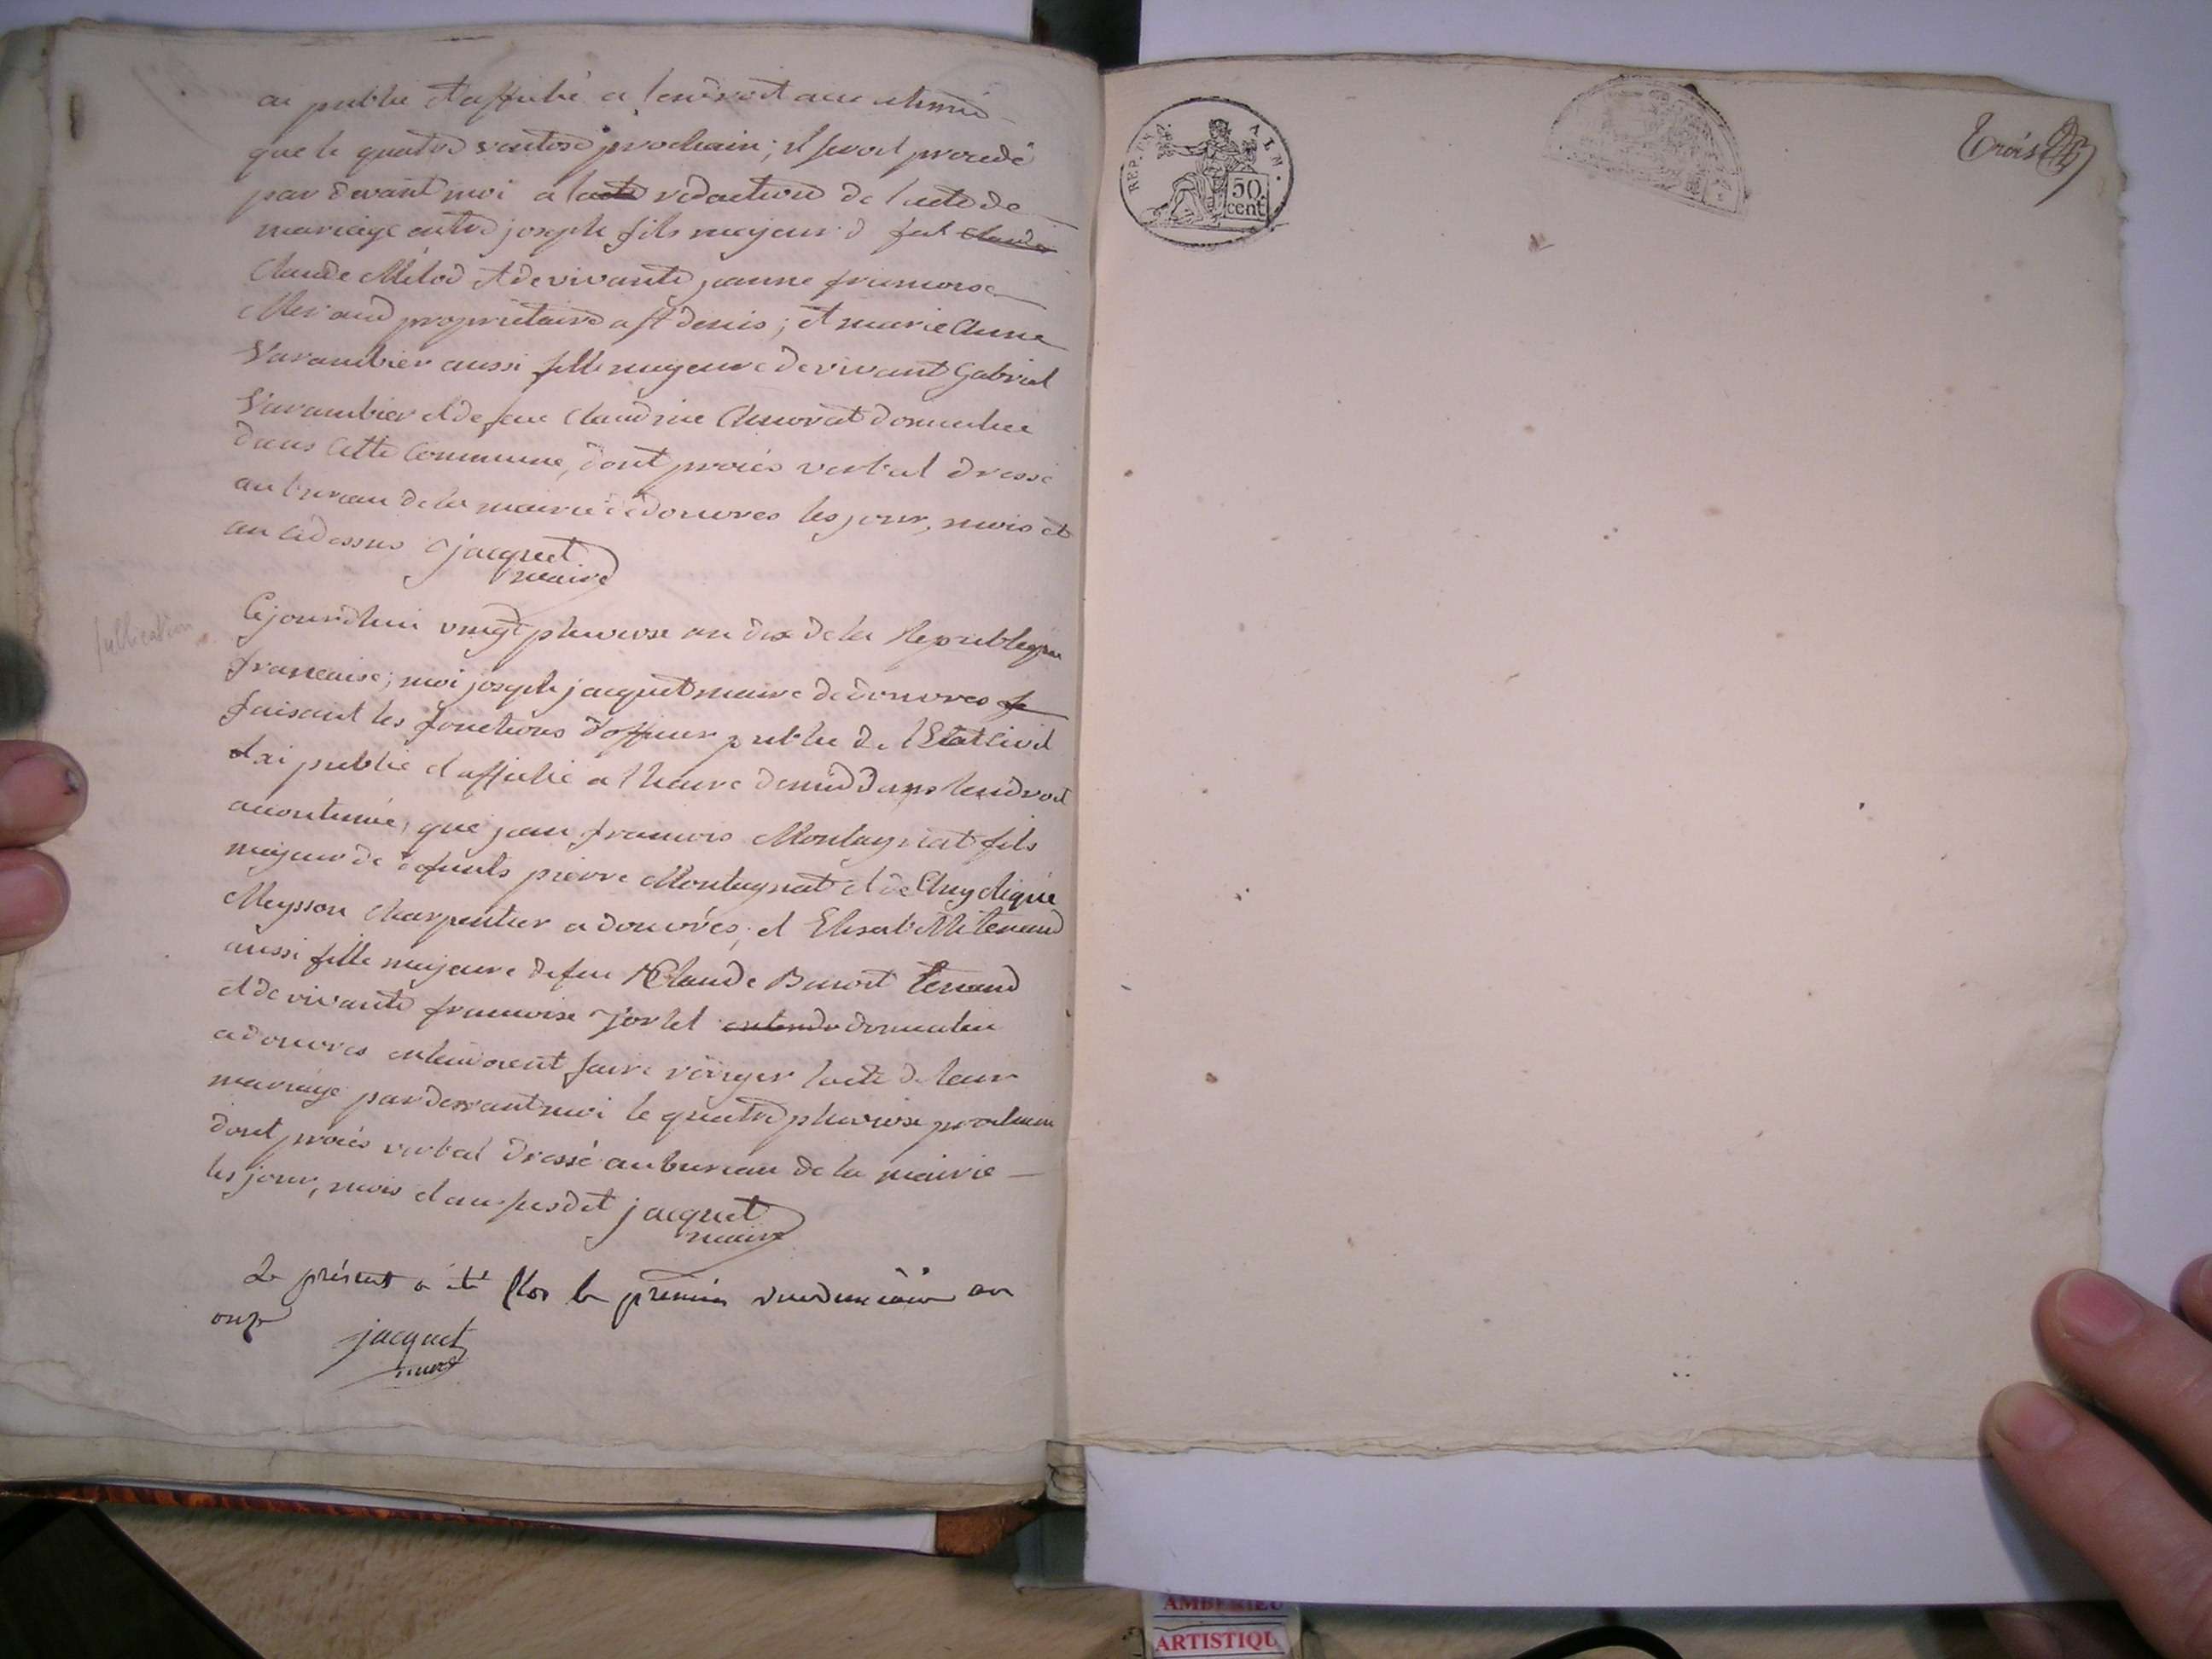 ai publié et affiché a lendroit accoutumé
que le quatre ventose prochain; il seroit procedé
par devant moi a lacte redaction de lacte de
mariage entre joseph fils majeur d feu claude
Claude Milod et de vivante jeanne francoise
Meraud propriétaire a st denis; et marie Anne
Varambier aussi fille majeure de vivant Gabriel
Varambier et de feue Claudine domiciliée
dans Cette Commune, dont procés verbal dressé
au bureau de la mairie de douvres les jour, mois et
an cidessus jacquet
maire
publication
Cejourdhui vingt pluviose an dix de la Republique
francaise; moi joseph jacquet maire de douvres
faisant les fonctions dofficier public de lEtat Civil
ai publié et affiché a lheure de midi dans lendroit
accoutumé, que jean francois Montagnat fils
majeur de defunts pierre Montagnat et de Angelique
Meysson charpentier a douvres; et Elisabeth tenand
aussi fille majeure de feu Claude Benoit tenand
et de vivante francoise jorlet entende domiciliée
a douvres entendoient faire rediger lacte de leur
mariage pardevant moi le quatre pluviose prochain
dont procés verbal dressé au bureau de la mairie
les jour, mois et an susdit jacquet
maire
Le présent a été clos le premier vendemiaire an
onze
jacquet
maire
REP. FRA.
50
cent
Trois
AMBERIEU
ARTISTIQU